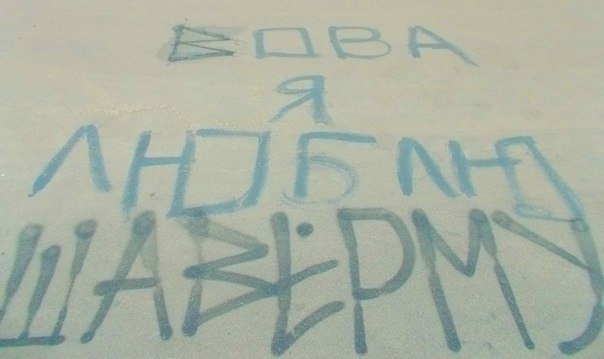 ВОВА
Я
ЛЮБЛЮ
ШАВЕРМУ